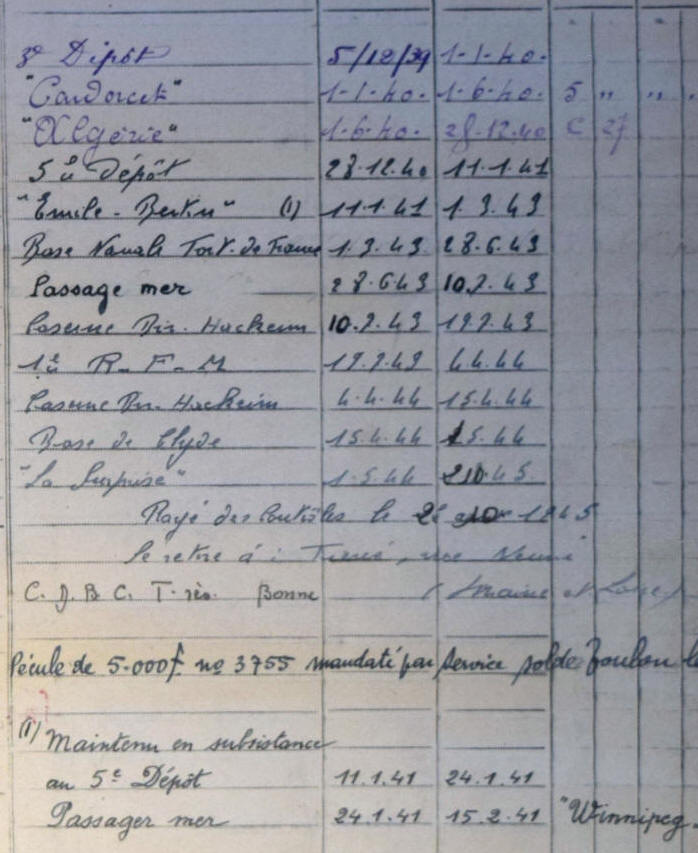 3e Dépôt 5/12/39 1-1-40.
"Condorcet" 1-1-40. 1-6-40. 5 " "
"Algérie" 1-6-40. 28-12-40 C 27
5e Dépôt 28.12.40 11.1.41
"Emile-Bertin" (1) 11.1.41 1.3.43
Base Navale Fort-de-France 1.3.43 28.6.43
Passage mer 28.6.43 10.7.43
Caserne Bir-Hackeim 10.7.43 19.7.43
1e R-F-M 19.7.43 4.4.44
Caserne Bir-Hackeim 4.4.44 15.4.44
Base de Clyde 15.4.44 1.5.44
"La Surprise" 1.5.44 2.10.45
Rayé des Contrôles le 10 1945
Se retire à :
C.J.B.C. Très Bonne (Maine et Loire)
Pécule de 5.000f no 3755 mandaté par service solde Toulon le
(1) Maintenu en subsistance
au 5e Dépôt 11.1.41 24.1.41
Passager mer 24.1.41 15.2.41 "Winnipeg.